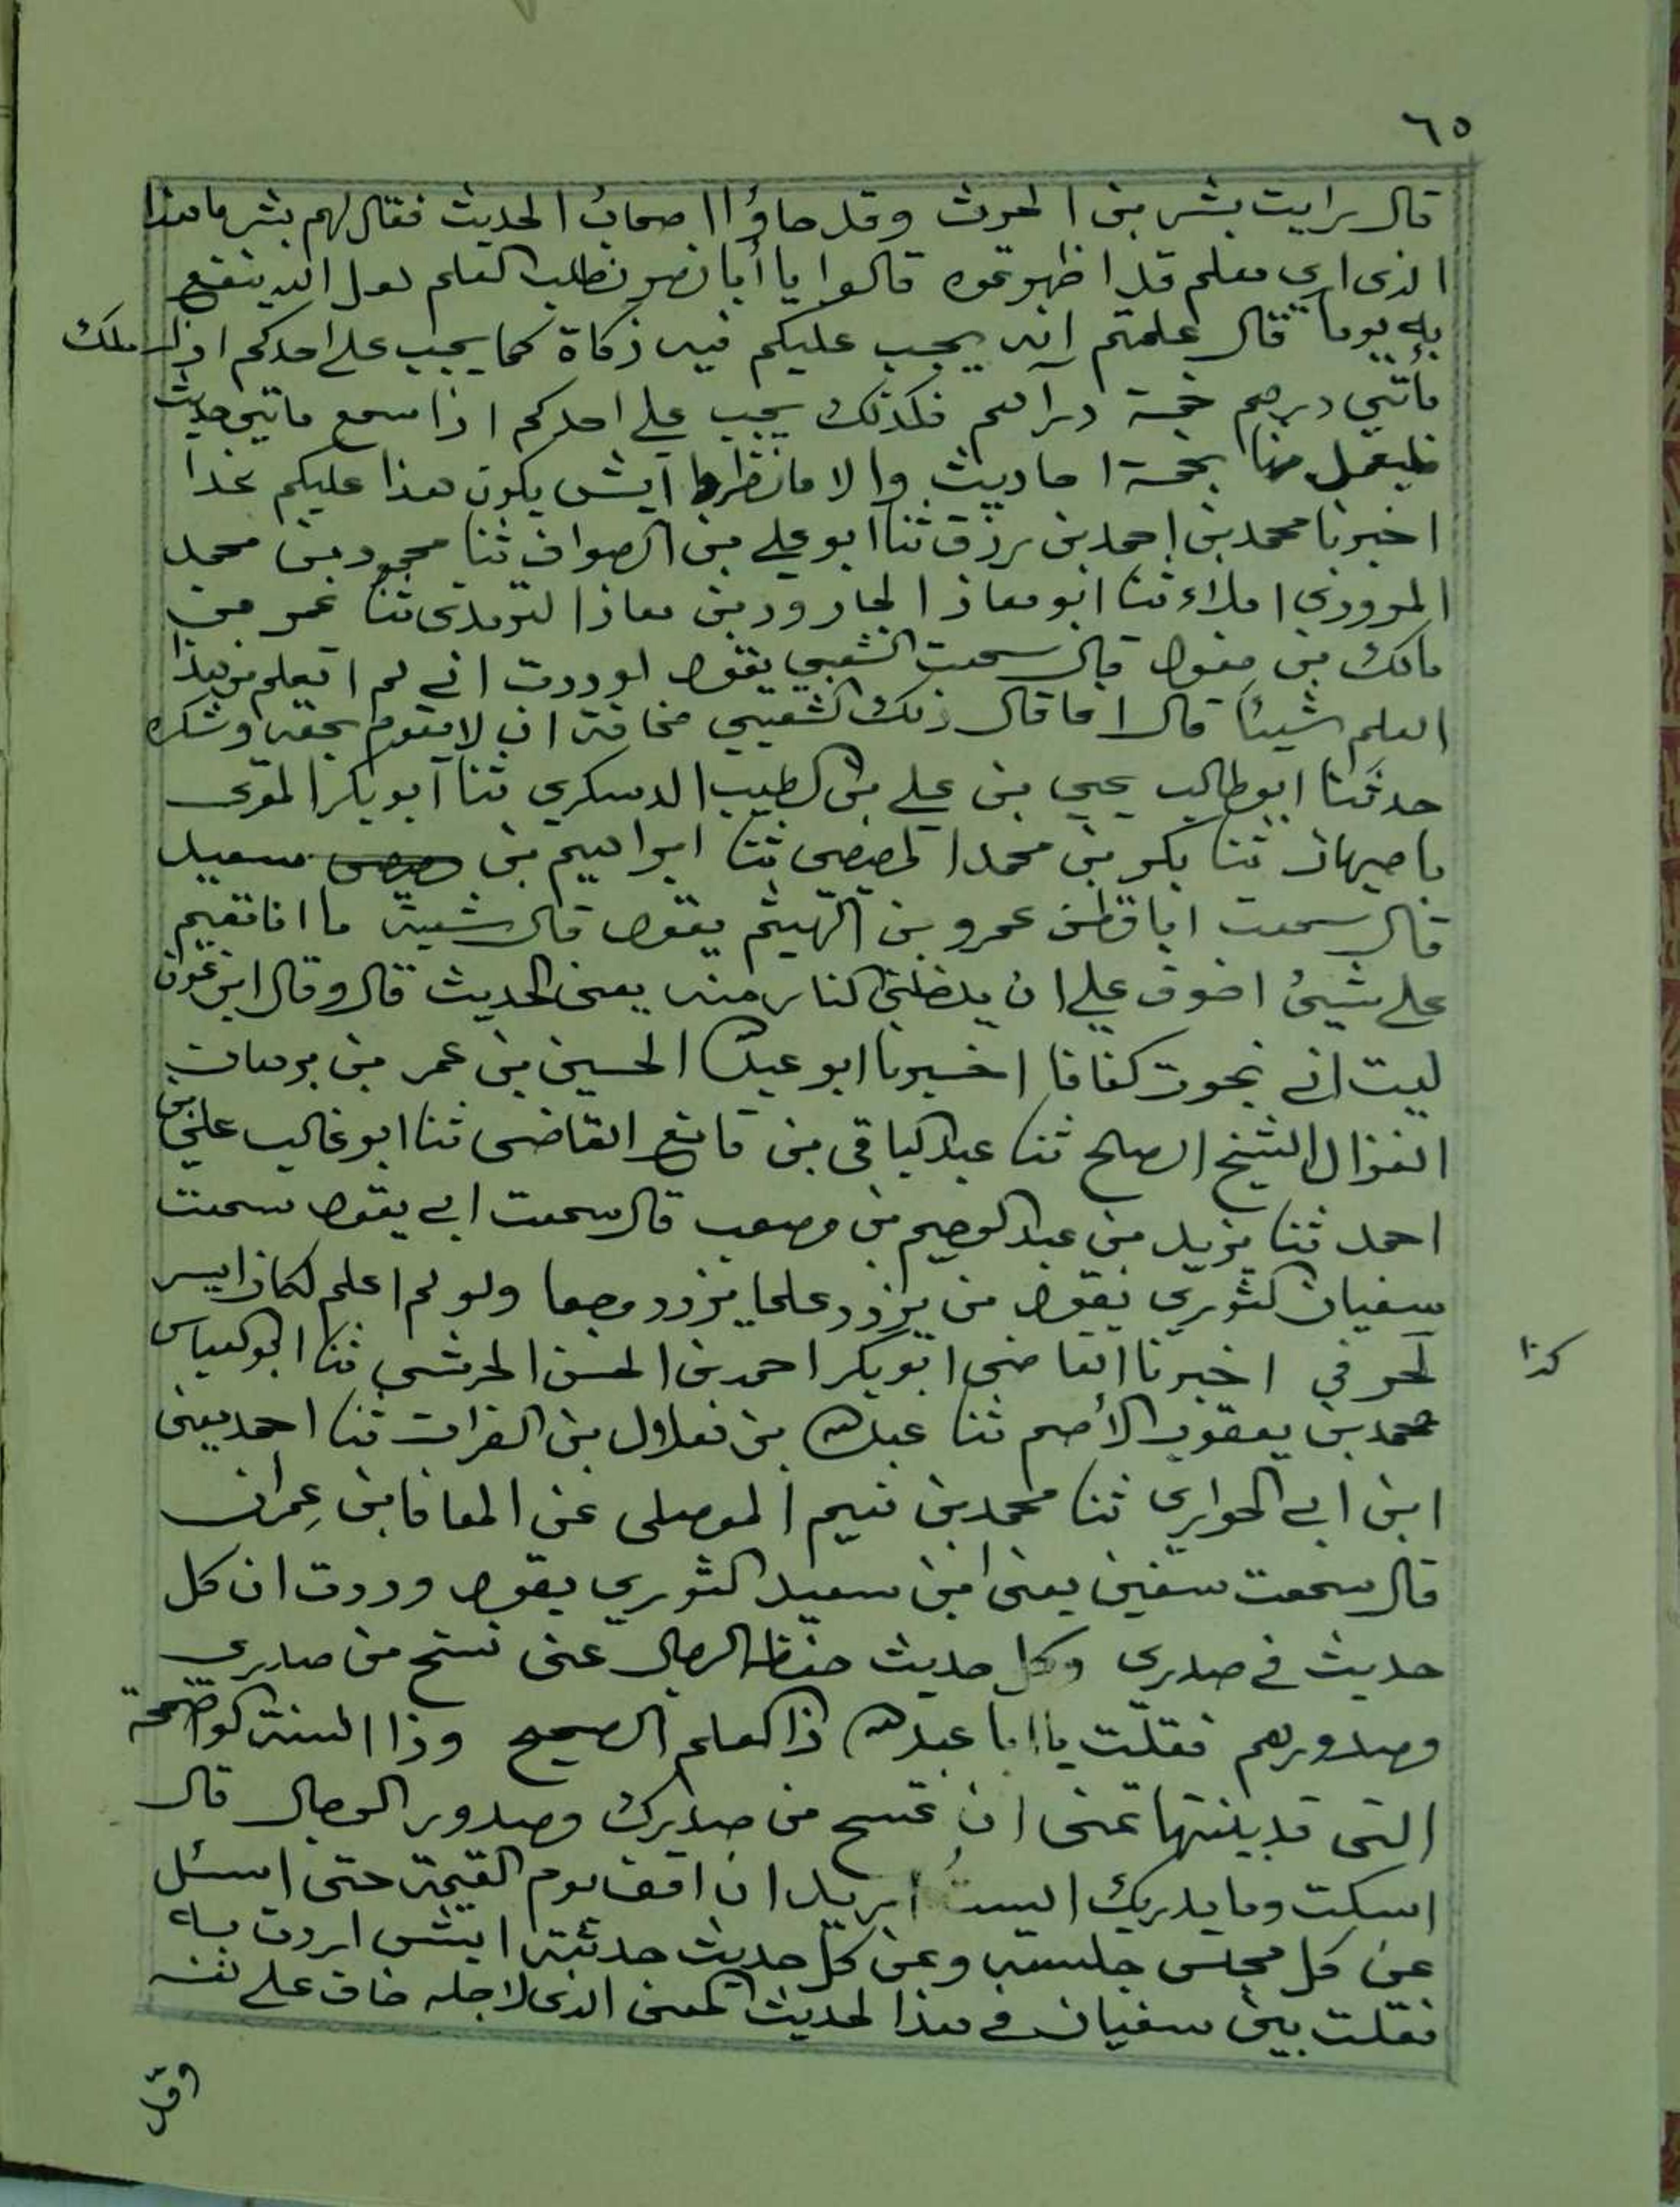 ٦٥
قال رايت بشر بن الحرث وقد جاؤا اصحاب الحديث فقال لهم بشر ما هذا
الذى ارى معكم قد اظهرتموه قالوا يا أبا نصر نطلب العلم لعل الله ينفع
به يوما قال علمتم انه يجب عليكم فيه زكاة كما يجب على احدكم اذا ملك
مأتي درهم خمسة دراهم فكذلك يجب على احدكم اذا سمع مأتي حديث
فليعمل منها بخمسة احاديث والا فانظروا ايش يكون هذا عليكم غدا
اخبرنا محمد بن احمد بن رزق ثنا ابو علي بن الصواف ثنا محمود بن محمد
المروزي املاء ثنا ابو معاذ الجارود بن معاذ الترمذى ثنا عمر بن
مالك بن مغول قال سمعت الشعبي يقول لوددت اني لم اتعلم من هذا
العلم شيئا قال اما قال ذلك الشعبي مخافة ان لا يقوم بحقه وشكره
حدثنا ابو طالب يحيى بن علي بن الطيب الدسكري ثنا ابو بكر المقرى
باصبهان ثنا بكر بن محمد المصيصى ثنا ابراهيم بن سعيد
قال سمعت ابا قطن عمرو بن الهيثم يقول قال شعبة ما انا مقيم
على شيئ اخوف علي ان يدخلني النار منه يعنى الحديث قال وقال ابن عون
ليت اني نجوت كفافا اخبرنا ابو عبد الله الحسين بن عمر بن برهان
الغزال الشيخ الصلح ثنا عبد الباقى بن قانع القاضى ثنا ابو غالب علي بن
احمد ثنا يزيد بن عبد الرحيم بن مصعب قال سمعت ابي يقول سمعت
سفيان الثوري يقول من يزدد علما يزدد وجعا ولو لم اعلم لكان ايسر
لحزني اخبرنا القاضى ابو بكر احمد بن الحسن الحرشي ثنا ابو العباس
كذا
محمد بن يعقوب الأصم ثنا عبد الله بن هلال بن الفرات ثنا احمد يعنى
ابن ابي الحوارى ثنا محمد بن تميم الموصلى عن المعافا بن عِمران
قال سمعت سفين يعنى ابن سعيد الثوري يقول وددت ان كل
حديث في صدري وكل حديث حفظه الرجال عنى نسخ من صدري
وصدورهم فقلت يا ابا عبد الله ذا العلم الصحيح وذا السنة الواضحة
التى قد بينتها تمنى ان تمسح من صدرك وصدور الرجال قال
اسكت وما يدريك الست اريد ان اقف يوم القيمة حتى اسئل
عن كل مجلس جلسته وعن كل حديث حدثته ايش اردت به
فقلت بين سفيان في هذا الحديث المعنى الذى لاجله خاف على نفسه